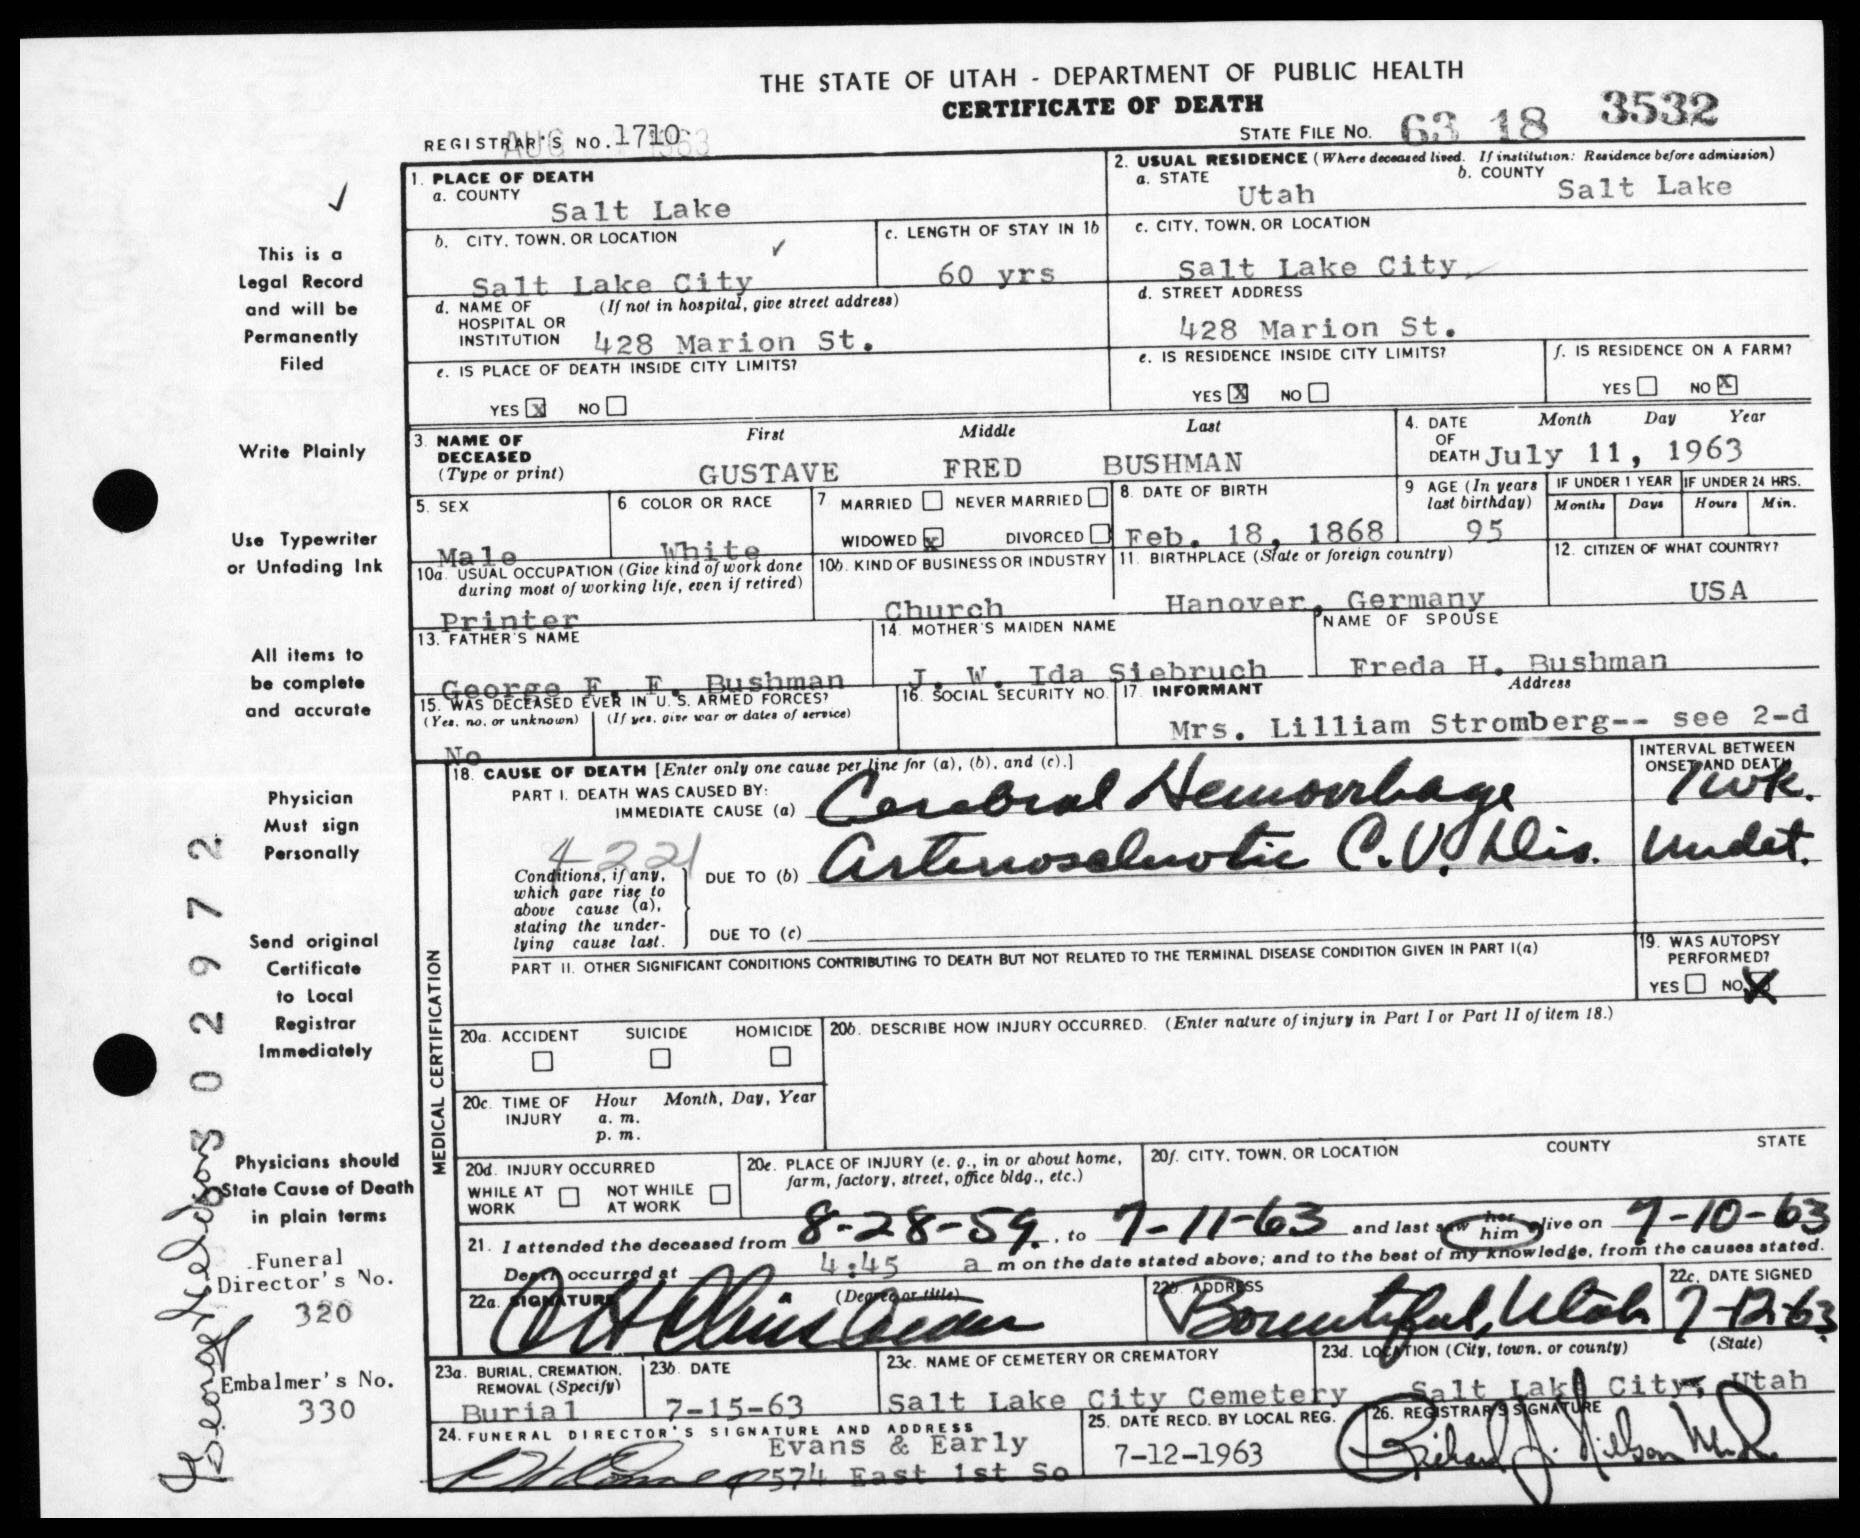 THE STATE OF UTAH - DEPARTMENT OF PUBLIC HEALTH
CERTIFICATE OF DEATH
REGISTRAR'S NO. 1710
AUG 1963
STATE FILE NO. 63 18 3532
This is a
Legal Record
and will be
Permanently
Filed
Write Plainly
Use Typewriter
or Unfading Ink
All items to
be complete
and accurate
Physician
Must sign
Personally
Send original
Certificate
to Local
Registrar
Immediately
Physicians should
State Cause of Death
in plain terms
Funeral
Director's No.
320
Embalmer's No.
330
02972
1. PLACE OF DEATH
a. COUNTY
Salt Lake
b. CITY, TOWN, OR LOCATION
Salt Lake City
c. LENGTH OF STAY IN 1b
60 yrs
d. NAME OF HOSPITAL OR INSTITUTION (If not in hospital, give street address)
428 Marion St.
e. IS PLACE OF DEATH INSIDE CITY LIMITS?
YES X NO
2. USUAL RESIDENCE (Where deceased lived. If institution: Residence before admission)
a. STATE
Utah
b. COUNTY
Salt Lake
c. CITY, TOWN, OR LOCATION
Salt Lake City
d. STREET ADDRESS
428 Marion St.
e. IS RESIDENCE INSIDE CITY LIMITS?
YES X NO
f. IS RESIDENCE ON A FARM?
YES NO X
3. NAME OF DECEASED (Type or print)
First Middle Last
GUSTAVE FRED BUSHMAN
4. DATE OF DEATH Month Day Year
July 11, 1963
5. SEX
Male
6 COLOR OR RACE
White
7 MARRIED NEVER MARRIED
WIDOWED x DIVORCED
8. DATE OF BIRTH
Feb. 18, 1868
9 AGE (In years last birthday)
95
IF UNDER 1 YEAR
Months Days
IF UNDER 24 HRS.
Hours Min.
10a. USUAL OCCUPATION (Give kind of work done during most of working life, even if retired)
Printer
10b. KIND OF BUSINESS OR INDUSTRY
Church
11. BIRTHPLACE (State or foreign country)
Hanover, Germany
12. CITIZEN OF WHAT COUNTRY?
USA
13. FATHER'S NAME
George F. F. Bushman
14. MOTHER'S MAIDEN NAME
J. W. Ida Siebruch
NAME OF SPOUSE
Freda H. Bushman
15. WAS DECEASED EVER IN U. S. ARMED FORCES?
(Yes, no, or unknown) (If yes, give war or dates of service)
No
16. SOCIAL SECURITY NO.
17. INFORMANT Address
Mrs. Lilliam Stromberg-- see 2-d
MEDICAL CERTIFICATION
18. CAUSE OF DEATH [Enter only one cause per line for (a), (b), and (c).]
INTERVAL BETWEEN ONSET AND DEATH
PART I. DEATH WAS CAUSED BY:
IMMEDIATE CAUSE (a) Cerebral Hemorrhage 1 wk.
4221
Conditions, if any, which gave rise to above cause (a), stating the underlying cause last.
DUE TO (b) Arteriosclerotic C.V. Dis. Undet.
DUE TO (c)
PART II. OTHER SIGNIFICANT CONDITIONS CONTRIBUTING TO DEATH BUT NOT RELATED TO THE TERMINAL DISEASE CONDITION GIVEN IN PART I(a)
19. WAS AUTOPSY PERFORMED?
YES NO X
20a. ACCIDENT SUICIDE HOMICIDE
20b. DESCRIBE HOW INJURY OCCURRED. (Enter nature of injury in Part I or Part II of item 18.)
20c. TIME OF INJURY Hour Month, Day, Year
a. m.
p. m.
20d. INJURY OCCURRED
WHILE AT WORK NOT WHILE AT WORK
20e. PLACE OF INJURY (e. g., in or about home, farm, factory, street, office bldg., etc.)
20f. CITY, TOWN, OR LOCATION COUNTY STATE
21. I attended the deceased from 8-28-59, to 7-11-63 and last saw her him alive on 7-10-63
Death occurred at 4:45 a m on the date stated above; and to the best of my knowledge, from the causes stated.
22a. SIGNATURE (Degree or title)
22b. ADDRESS
Bountiful, Utah
22c. DATE SIGNED
7-12-63
23a. BURIAL, CREMATION, REMOVAL (Specify)
Burial
23b. DATE
7-15-63
23c. NAME OF CEMETERY OR CREMATORY
Salt Lake City Cemetery
23d. LOCATION (City, town, or county) (State)
Salt Lake City, Utah
24. FUNERAL DIRECTOR'S SIGNATURE AND ADDRESS
Evans & Early
574 East 1st So
25. DATE RECD. BY LOCAL REG.
7-12-1963
26. REGISTRAR'S SIGNATURE
Richard J. Nielson M.D.